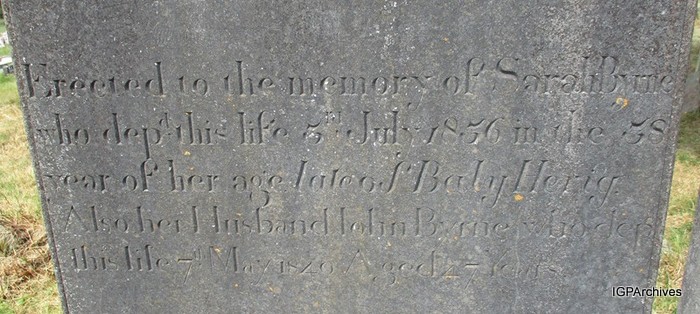 Erected to the memory of Sarah Byrne
who dep.d this life 5th July 1856 in the 58
year of her age late of Baly Herig
Also her Husband John Byrne who dep
this life 7th May 1840 Aged 47 Years
IGPArchives